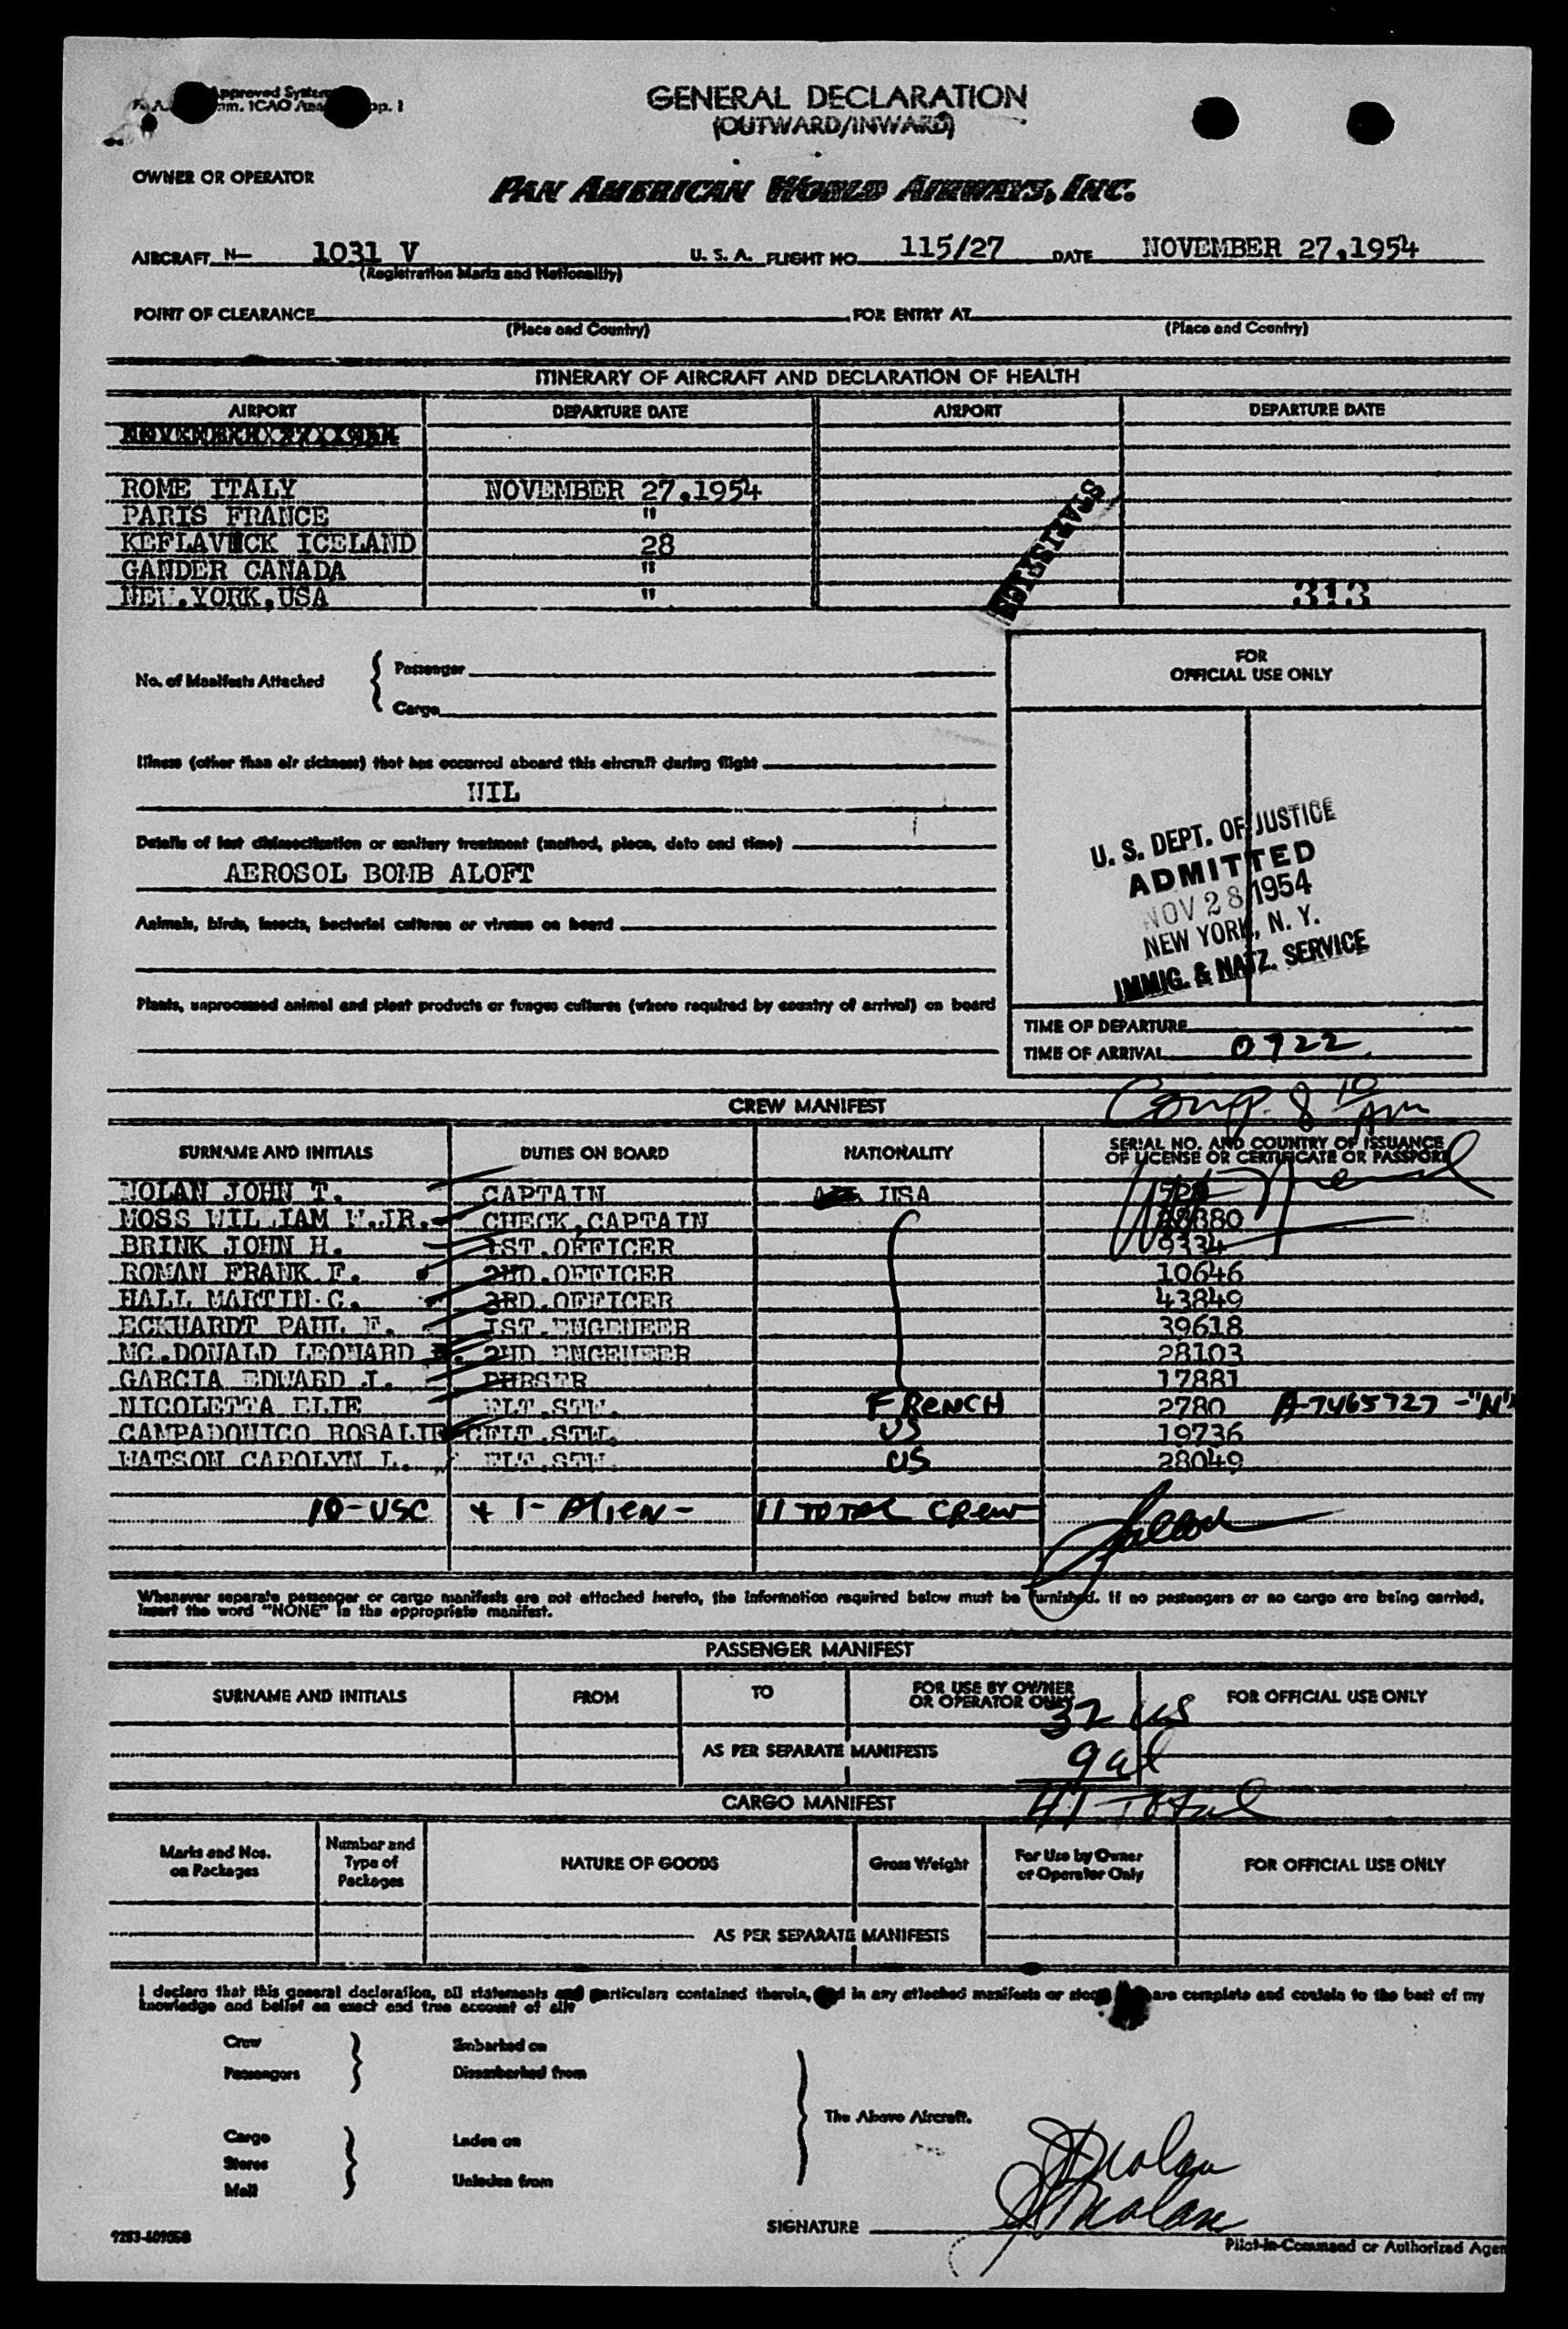 Approved System
ICAO
GENERAL DECLARATION
(OUTWARD/INWARD)
OWNER OR OPERATOR
PAN AMERICAN WORLD AIRWAYS, INC.
AIRCRAFT N— 1031 V U. S. A. FLIGHT NO. 115/27 DATE NOVEMBER 27,1954
(Registration Marks and Nationality)
POINT OF CLEARANCE FOR ENTRY AT
(Place and Country) (Place and Country)
ITINERARY OF AIRCRAFT AND DECLARATION OF HEALTH
AIRPORT DEPARTURE DATE AIRPORT DEPARTURE DATE
ROME ITALY NOVEMBER 27,1954
PARIS FRANCE "
KEFLAVICK ICELAND 28
GANDER CANADA "
NEW.YORK,USA " 313
STATISTICS
No. of Manifests Attached { Passenger
Cargo
FOR
OFFICIAL USE ONLY
Illness (other than air sickness) that has occurred aboard this aircraft during flight
NIL
Details of last disinsectization or sanitary treatment (method, place, date and time)
AEROSOL BOMB ALOFT
Animals, birds, insects, bacterial cultures or viruses on board
Plants, unprocessed animal and plant products or fungus cultures (where required by country of arrival) on board
U. S. DEPT. OF JUSTICE
ADMITTED
NOV 28 1954
NEW YORK, N. Y.
IMMIG. & NATZ. SERVICE
TIME OF DEPARTURE
TIME OF ARRIVAL 0722
Comp. 8 10 AM
CREW MANIFEST
SURNAME AND INITIALS DUTIES ON BOARD NATIONALITY SERIAL NO. AND COUNTRY OF ISSUANCE
OF LICENSE OR CERTIFICATE OR PASSPORT
NOLAN JOHN T. CAPTAIN USA
MOSS WILLIAM W.JR. CHECK,CAPTAIN
BRINK JOHN H. 1ST.OFFICER 9334
ROMAN FRANK F. 2ND.OFFICER 10646
HALL MARTIN C. 3RD.OFFICER 43849
ECKHARDT PAUL F. 1ST.ENGENEER 39618
MC.DONALD LEONARD 2ND ENGENEER 28103
GARCIA EDWARD J. PURSER 17881
NICOLETTA ELIE FLT.STW. FRENCH 2780 A-7465727 -"N"
CAMPADONICO ROSALIE C FLT.STW. US 19736
WATSON CAROLYN L. FLT.STW. US 28049
10-USC + 1-Alien- 11 TOTAL CREW
Whenever separate passenger or cargo manifests are not attached hereto, the information required below must be furnished. If no passengers or no cargo are being carried,
insert the word "NONE" in the appropriate manifest.
PASSENGER MANIFEST
SURNAME AND INITIALS FROM TO FOR USE BY OWNER
OR OPERATOR ONLY FOR OFFICIAL USE ONLY
32 US
AS PER SEPARATE MANIFESTS 9 al
41 Total
CARGO MANIFEST
Marks and Nos.
on Packages Number and
Type of
Packages NATURE OF GOODS Gross Weight For Use by Owner
or Operator Only FOR OFFICIAL USE ONLY
AS PER SEPARATE MANIFESTS
I declare that this general declaration, all statements and particulars contained therein, and in any attached manifests or are complete and contain to the best of my
knowledge and belief an exact and true account of all:
Crew Embarked on
Passengers Disembarked from
The Above Aircraft.
Cargo Laden on
Stores
Mail Unladen from
JTNolan
JTNolan
SIGNATURE
Pilot-in-Command or Authorized Agen